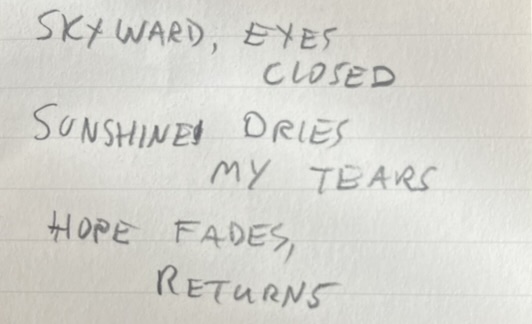 SKYWARD, EYES
CLOSED
SUNSHINE DRIES
MY TEARS
HOPE FADES,
RETURNS